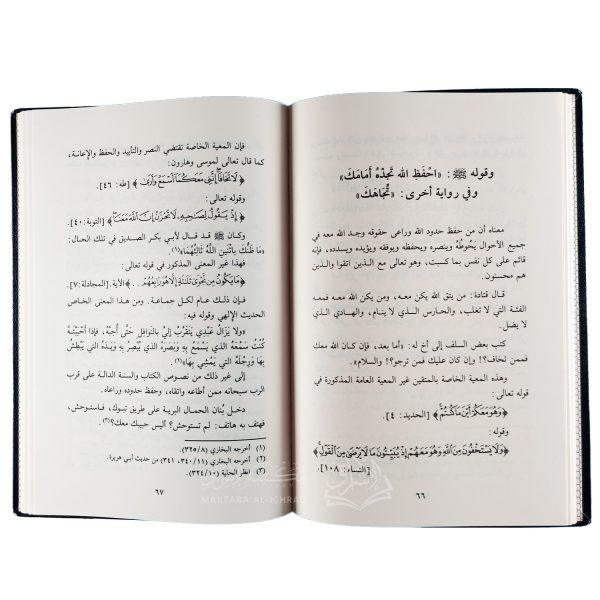 وقوله ﷺ: «احْفَظِ الله تَجِدْهُ أمَامَكَ»
وفي رواية أخرى: «تُجَاهَكَ»
معناه أن من حفظ حدود الله وراعى حقوقه وجد الله معه في
جميع الأحوال يَحُوطُهُ وينصره ويحفظه ويوفقه ويؤيده ويسدده، فإنه
قائم على كل نفس بما كسبت، وهو تعالى مع الذين اتقوا والذين هم
محسنون.
قال قتادة: من يتق الله يكن معه، ومن يكن الله معه فمعه
الفئة التي لا تغلب، والحارس الذي لا ينام، والهادي الذي لا
يضل.
كتب بعض السلف إلى أخ له: أما بعد، فإن كان الله معك
فممن تخاف؟! وإن كان عليك فمن ترجو؟! والسلام».
وهذه المعية الخاصة بالمتقين غير المعية العامة المذكورة في
﴿وَهُوَ مَعَكُمْ أَيْنَ مَا كُنتُمْ﴾ [الحديد: ٤].
وقوله:
﴿وَلَا يَسْتَخْفُونَ مِنَ اللَّهِ وَهُوَ مَعَهُمْ إِذْ يُبَيِّتُونَ مَا لَا يَرْضَى مِنَ الْقَوْلِ﴾
[النساء: ١٠٨].
٦٦
فإن المعية الخاصة تقتضي النصر والتأييد والحفظ والإعانة،
كما قال تعالى لموسى وهارون:
﴿لَا تَخَافَا إِنَّنِي مَعَكُمَا أَسْمَعُ وَأَرَى﴾ [طه: ٤٦].
وقوله تعالى:
﴿إِذْ يَقُولُ لِصَاحِبِهِ لَا تَحْزَنْ إِنَّ اللَّهَ مَعَنَا﴾ [التوبة: ٤٠].
وكان ﷺ قد قال لأبي بكر الصديق في تلك الحال:
«مَا ظَنُّكَ بِاثْنَيْنِ اللَّهُ ثَالِثُهُمَا»(١)
فهذا غير المعنى المذكور في قوله تعالى:
﴿مَا يَكُونُ مِن نَّجْوَى ثَلَاثَةٍ إِلَّا هُوَ رَابِعُهُمْ . . .﴾ الآية. [المجادلة: ٧].
فإن ذلك عام لكل جماعة. ومن هذا المعنى الخاص
الحديث الإلهي وقوله فيه:
«ولا يَزَالُ عَبْدِي يَتَقَرَّبُ إِلَيَّ بالنوافلِ حَتَّى أُحِبَّهُ، فإذا أَحْبَبْتُهُ
كُنْتُ سَمْعَهُ الذي يَسْمَعُ بِهِ وَبَصَرَهُ الذي يُبْصِرُ بِهِ وَيَدَهُ التي يَبْطِشُ
بِهَا وَرِجْلَهُ التي يَمْشِي بِهَا»(٢)
إلى غير ذلك من نصوص الكتاب والسنة الدالة على قرب
الرب سبحانه ممن أطاعه واتقاه، وحفظ حدوده وراعاه.
دخل بُنان الحمال البرية على طريق تبوك، فاستوحش،
فهتف به هاتف: لم تستوحش؟ أليس حبيبك معك؟(٣).
(١) أخرجه البخاري (٣٢٥/٨)
(٢) أخرجه البخاري (٣٤٠/١١، ٣٤١) من حديث أبي هريرة.
(٣) انظر الحلية (٣٢٤/١٠)
٦٧
MAKTABA AL-ICHRAQ